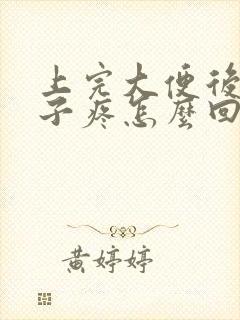 上完大便後
子疼怎麼回
黃婷婷